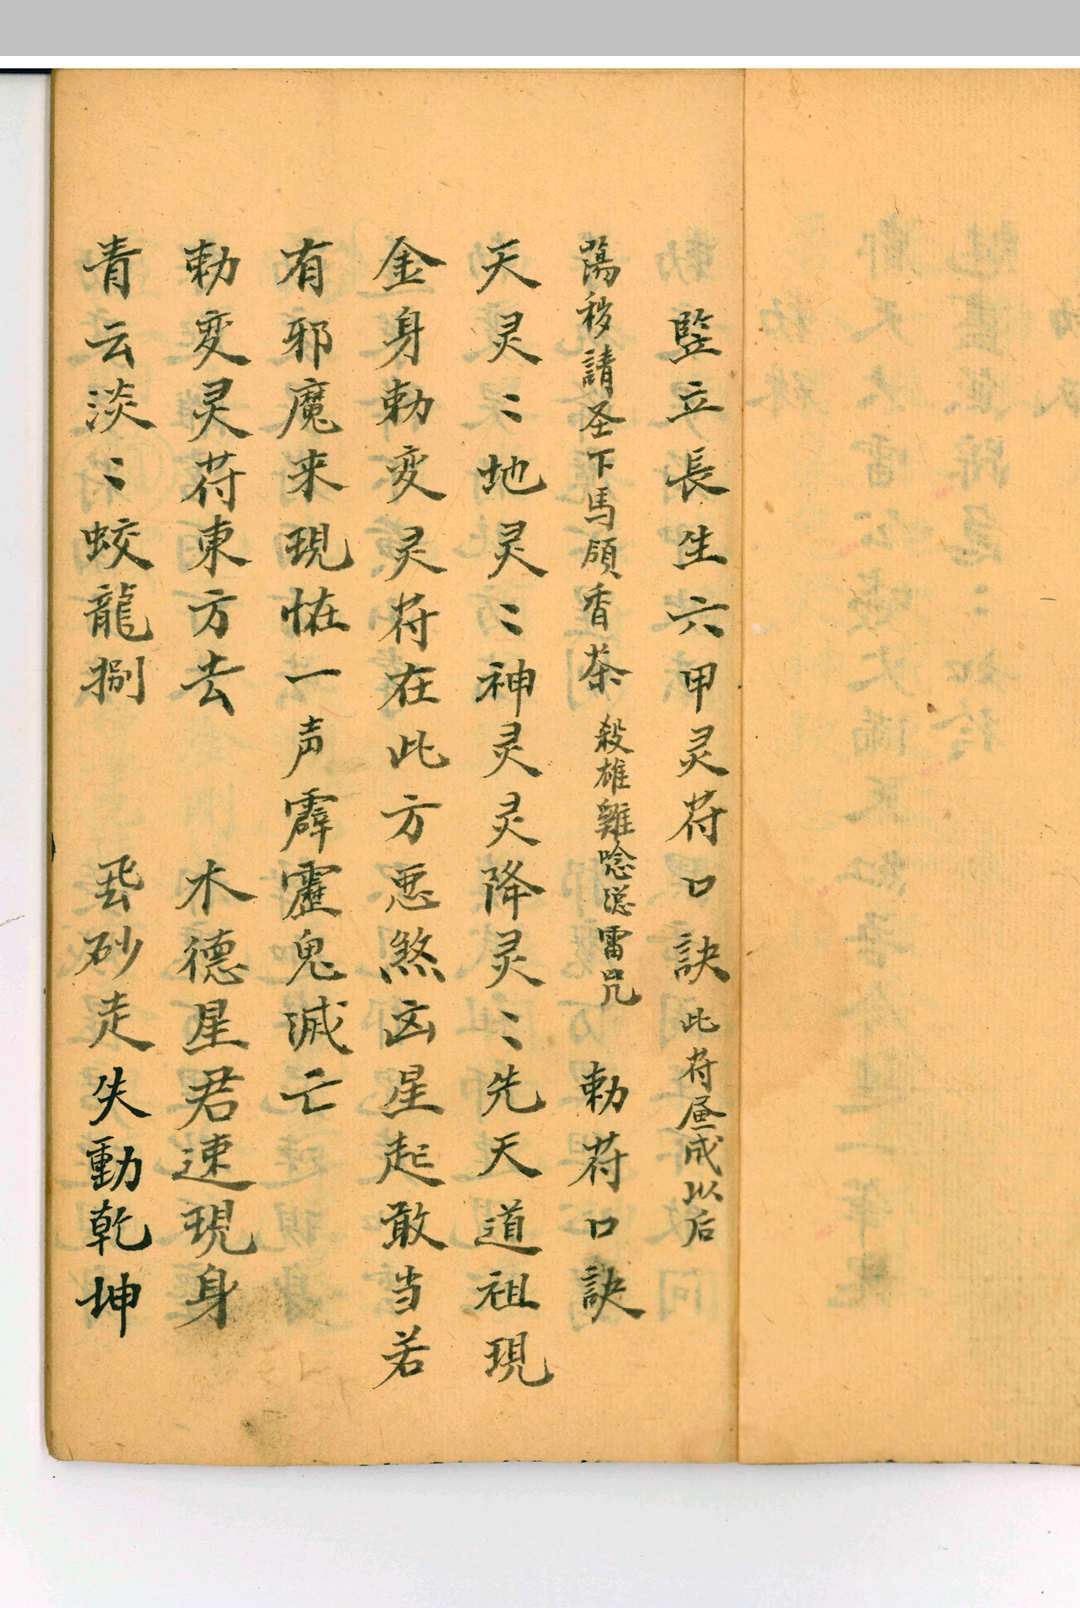 竪立長生六甲灵符口訣此符画成以后
蕩秽請圣下馬領香茶殺雄雞唸送雷咒 勅符口訣
天灵〻地灵〻神灵灵降灵〻先天道祖現
金身勅変灵符在此方恶煞凶星起敢当若
有邪魔来現怪一声霹靂鬼滅亡
勅変灵符東方去 木德星君速現身
青云淡〻蛟龍捌 飛砂走失動乾坤